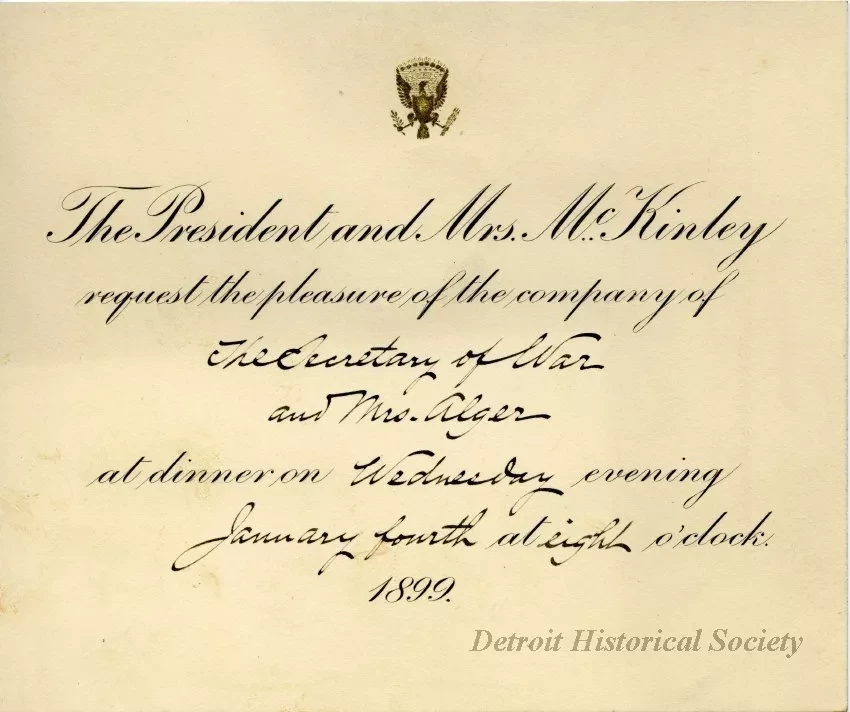 The President and Mrs. McKinley
request the pleasure of the company of
The Secretary of War
and Mrs. Alger
at dinner on Wednesday evening
January fourth at eight o'clock.
1899.
Detroit Historical Society